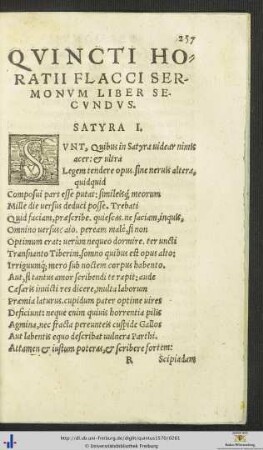 257
QVINCTI HO-
RATII FLACCI SER-
MONVM LIBER SE-
CVNDVS.
SATYRA I.
SVNT, Quibus in Satyra videar nimis
acer: & ultra
Legem tendere opus. sine neruis altera,
quidquid
Composui pars esse putat: similesq́; meorum
Mille die versus deduci posse. Trebati
Quid faciam, præscribe. quiescas. ne faciam, inquis,
Omnino uersus: aio. peream malè, si non
Optimum erat: uerùm nequeo dormire. ter uncti
Transnanto Tiberim, somno quibus est opus alto;
Irriguumq́; mero sub noctem corpus habento.
Aut, si tantus amor scribendi te rapit; aude
Cæsaris inuicti res dicere, multa laborum
Præmia laturus. cupidum pater optime uires
Deficiunt: neque enim quiuis horrentia pilis
Agmina, nec fracta pereunteis cuspide Gallos
Aut labentis equo describat uulnera Parthi.
Attamen & iustum poteras, & scribere fortem:
R Scipiadam
http://dl.ub.uni-freiburg.de/diglit/quintus1570/0261
© Universitätsbibliothek Freiburg